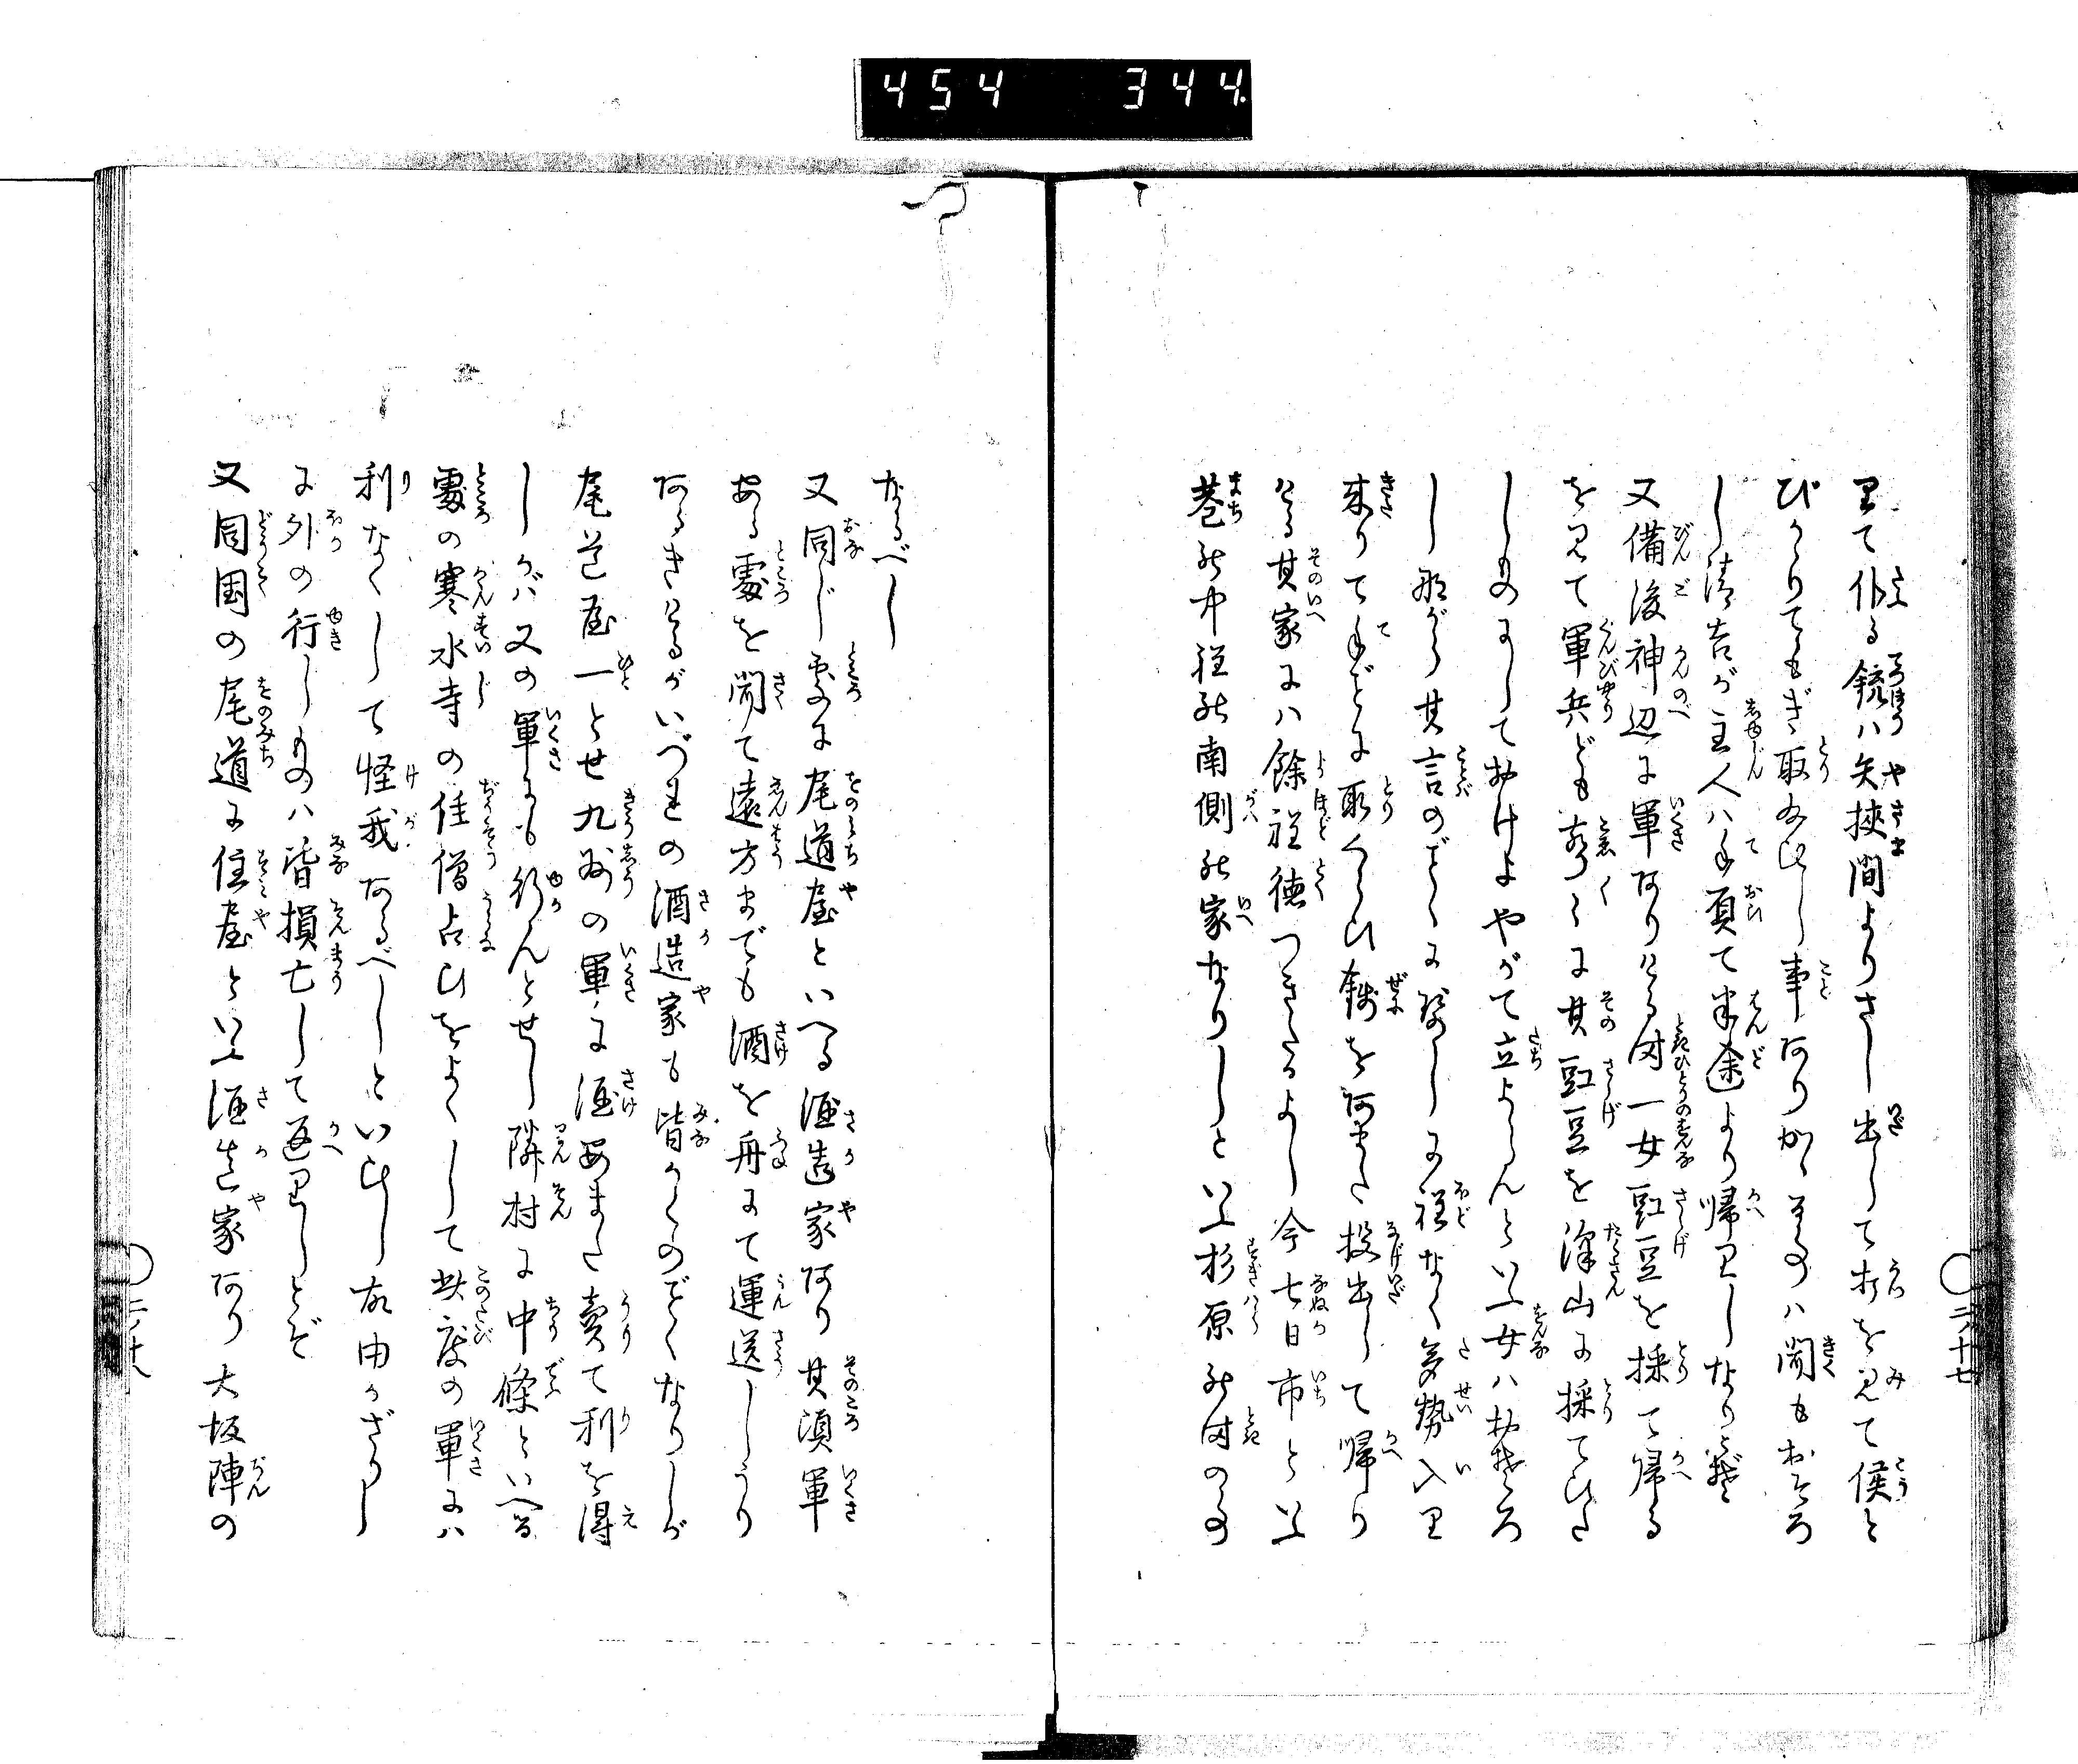 454 344.
里て仆る銃ハ矢挾間よりさし出して打を見て侯と
びかゝりてもぎ取給ひし事ありかゝるものハ聞もおそろ
し清吉が主人ハ手負て半途より帰里しなりとぞ
又備後神辺に軍ありける時一女豇豆を採て帰る
を見て軍兵ども声〻に其豇豆を沢山に採てひた
しものにしておけよやがて立よらんといふ女ハおそろ
しながら其言のごとくに程なく多勢入里
来りて手ごとに取くらひ銭をあまた投出して帰り
ける其家にハ余程徳つきたるよし今七日市といふ
巷の中程の南側の家なりしといふ杉原の時の事
二ノ十七
なるべし
又同じ処に尾道屋といへる酒造家あり其頃軍
ある処を聞て遠方までも酒を舟にて運送しうり
あるきけるがいづ里の酒造家も皆かくのごとくなりしが
尾道屋一とせ九州の軍に酒あまた売て利を得
しかバ又の軍にも行んとせし隣村に中條といへる
処の寒水寺の住僧占ひをよくして此度の軍にハ
利なくして怪我あるべしといひし故由かざりし
に外の行しものハ皆損亡して返里しとぞ
又同国の尾道に住屋といふ酒造家あり大坂陣の
二ノ十八